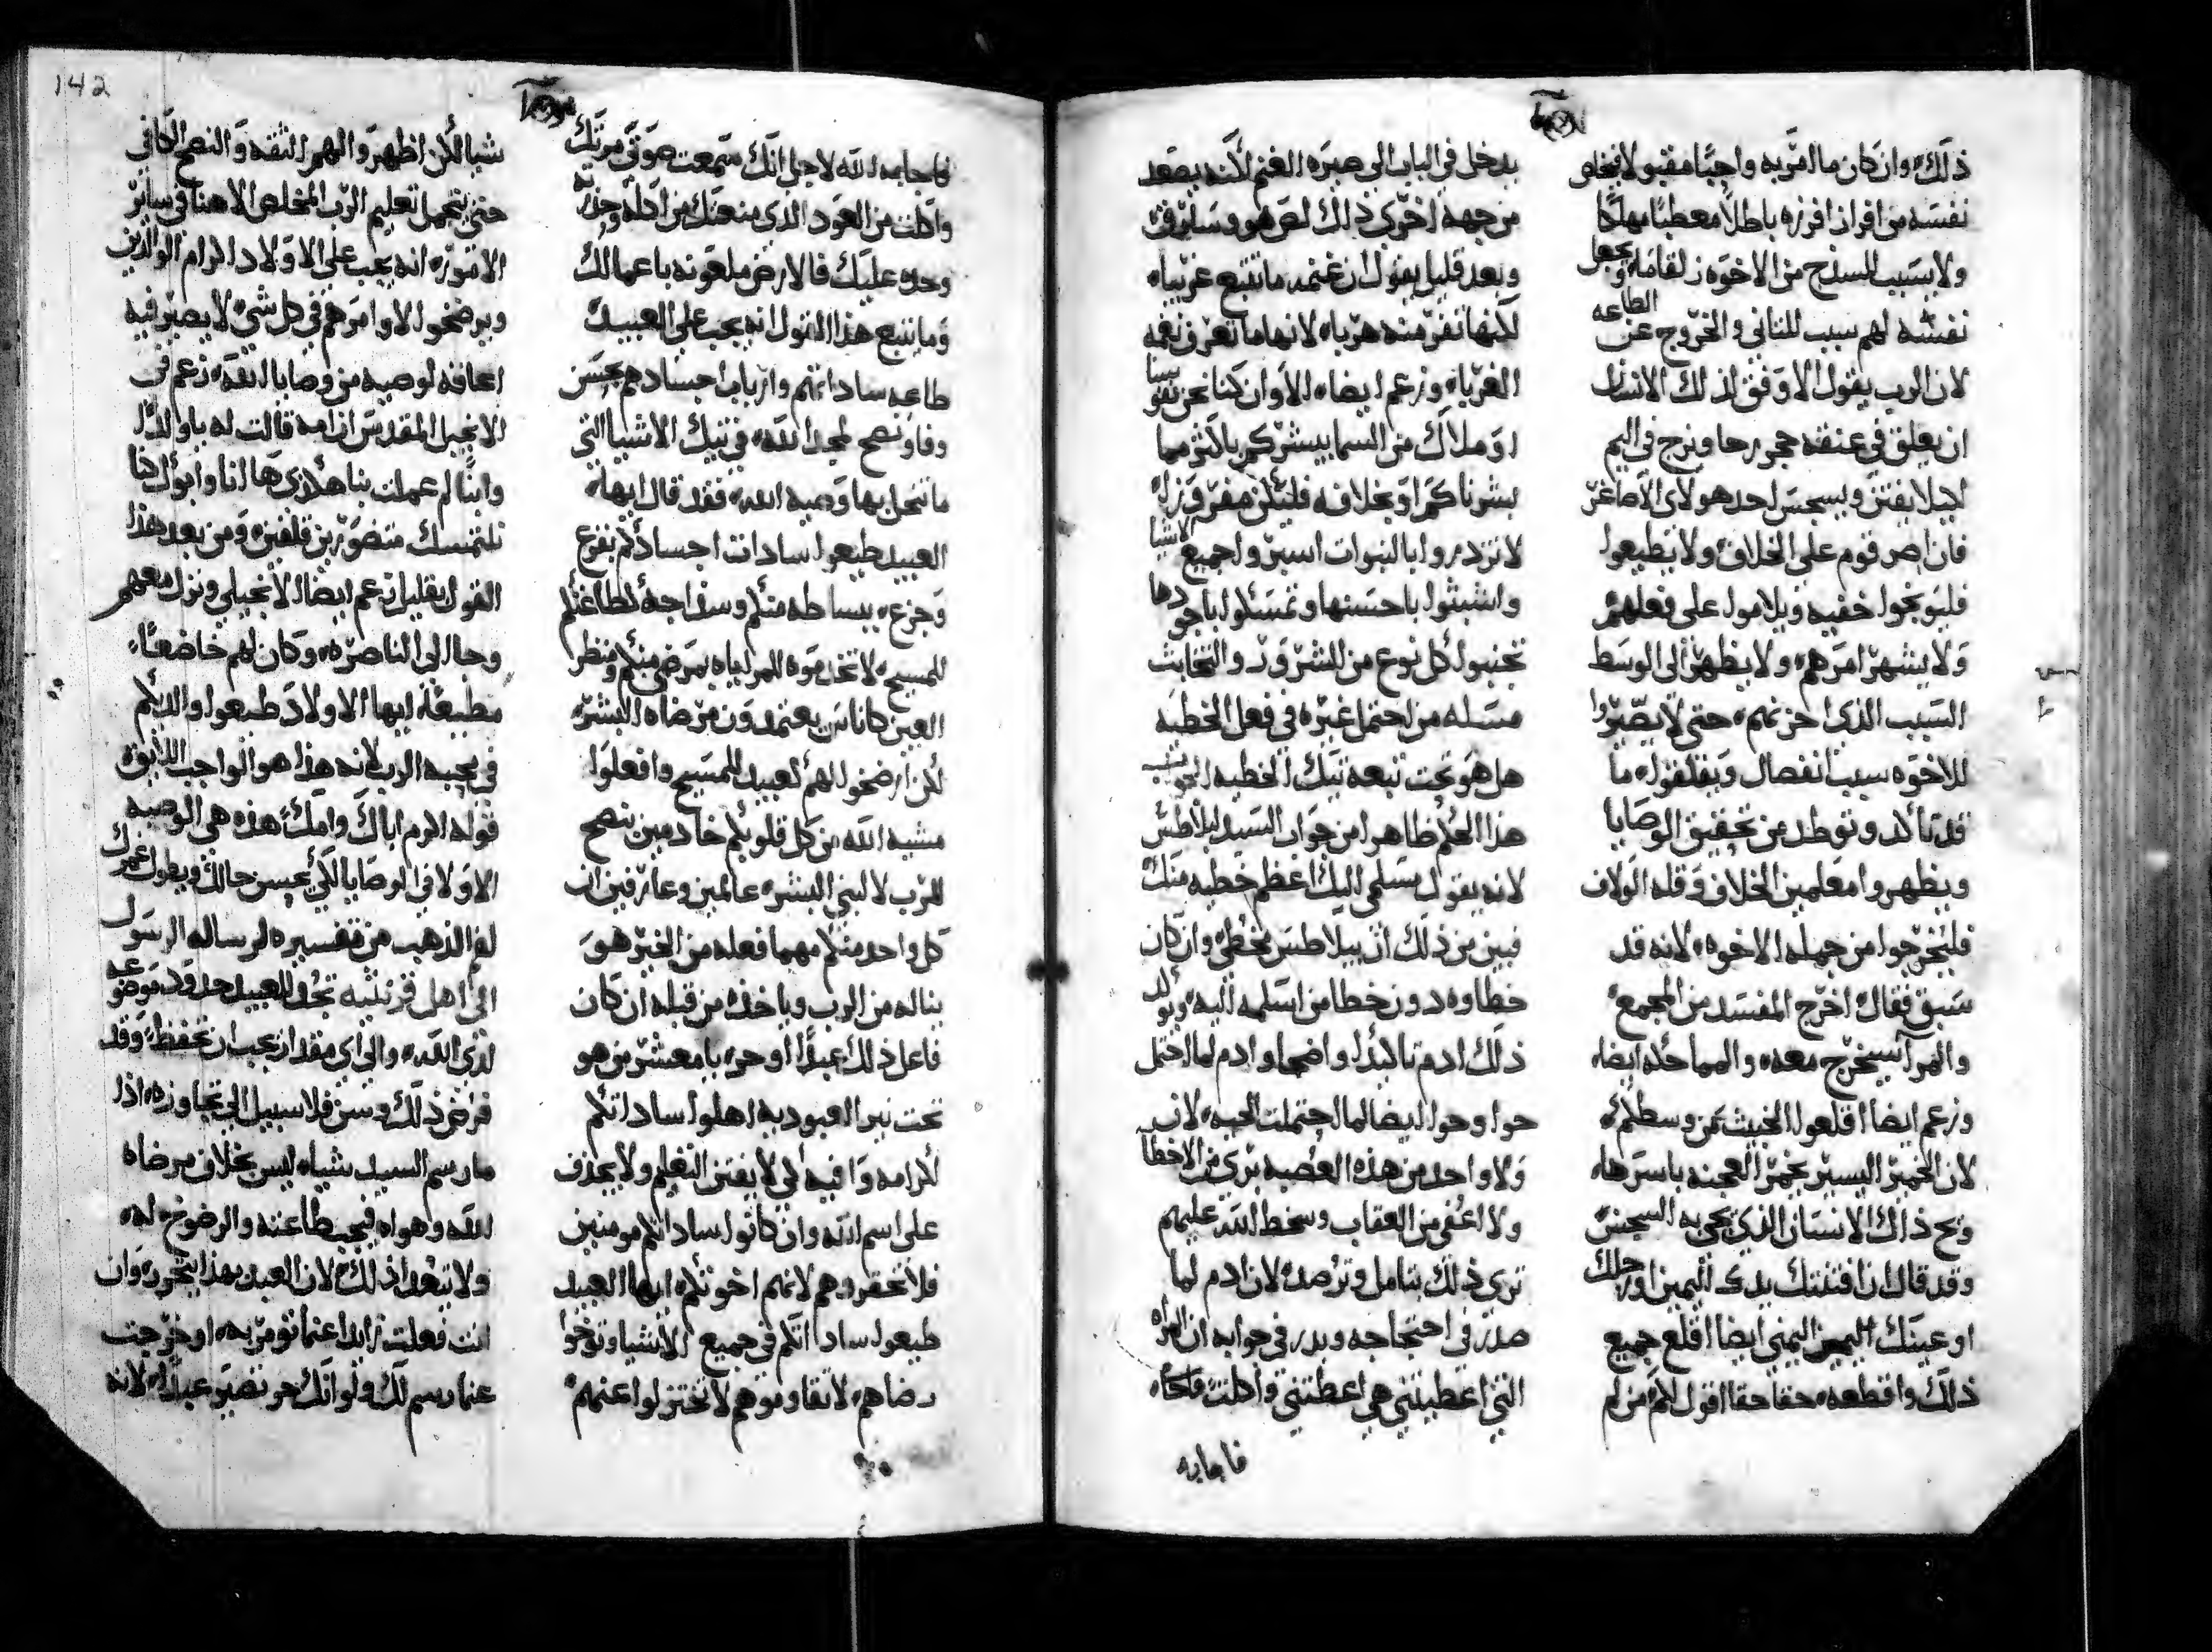 ذلك، وان كان ما امر به واجبًا مقبولا فيخلص
نفسه من افراز افرزه باطلاً معطبًا مهلكًا
ولا يسبب للسذج من الاخوه زلقا ما، ويجعل
نفسه لهم سبب للتاني والخروج عن الطاعه
لان الرب يقول الاوفق لذلك الانسان
ان يعلق في عنقه حجر رحا ويزج في اليم
ليلا يفتن ويسجس احد هولاى الاصاغر
فان اصر قوم على الخلاف ولا يطيعوا
فليوبخوا خفيه ويلاموا على فعلهم
ولا يشهر امرهم، ولا يظهر الى الوسط
السبب الذي احزنهم، حتى لا يصيروا
للاخوه سبب انفصال ويقلقوا، ما
قد تاكد وتوطد من تحقيق الوصايا
ويظهروا معلمين الخلاف وقله
فليخرجوا من جمله الاخوه، لانه قد
سبق فقال اخرج المفسد من المجمع
والمرا سيخرج معه، والمماحكه ايضا،
وزعم ايضا اقلعوا الخبيث من وسطكم،
لان الخمير اليسير يخمر العجنه باسرها،
ويح ذاك الانسان الذي تجي به السجس
وقد قال ان افتنتك يدك اليمين او رجلك
او عينك اليمنى ايضا اقلع جميع
ذلك واقطعه، حقا حقا اقول لكم من لم
يدخل في الباب الى صيره الغنم لكنه يصعد
من جهه اخرى ذلك لص هو وسارق
وبعد قليل يقول ان غنمه ما تتبع غريبا،
لكنها تفر منه هربا، لانها ما تعرف نغمه
الغربا، وزعم ايضا، الا وان كنا نحن نفوسنا
او ملاك من السما يبشركم باكثر مما
بشرناكم او بخلافه فليكن مفروزا،
لا تزدروا بالنبوات اسبروا جميع الاشيا
واتشبثوا باحسنها وتمسكوا باجودها
تجنبوا كل نوع من الشرور والتخابث
مسله من احتمل غيره في فعل الخطيه
هل هو تحت تبعه تيك الخطيه الجواب
هذا الحكم ظاهرا من جواب السيد لبيلاطس
لانه يقول مسلمي اليك اعظم خطيه منك
فبين من ذلك ان بيلاطس مخطي وان كان
خطاوه دون خطا من اسلمه اليه، ويوكد
ذلك ادم تاكيدًا واضحا وادم لما احتمل
حوا وحوا ايضا لما احتملت الحيه، لان
ولا واحد من هذه العصبه بري من الاخطا
ولا اعفي من العقاب وسخط الله عليهم
ترى ذلك بتامل وترصد، لان ادم لما
صدر في احتجاجه وبدر في جوابه ان المراه
التي اعطيتني هي اعطتني واكلت فاجابه
فاجابه
فاجابه الله لاجل انك سمعت صوت مرتك
واكلت من العود الذي منعتك من اكله وحذرته
وحده عليك فالارض ملعونه باعمالك
وما يتبع هذا القول انه يجب على العبيد
طاعه ساداتهم وارباب اجسادهم بحسن
وفا ونصح لمجد الله، في تيك الاشيا التي
ما تنحل بها وصيه الله، فقد قال ايها،
العبيد طيعوا سادات اجسادكم بفزع
وجزع، ببساطه منكم وسذاجه كطاعتكم
للمسيح، لا تخدموه للمراياه بمرضى منكم ومنظر
العين كاناس يعتمدون مرضاه البشر،
لكن ارضخوا لهم كعبيد للمسيح وافعلوا
مشيه الله من كل قلوبكم خادمين بنصح
للرب لا لبني البشر، عالمين وعارفين ان
كل واحد منكم مهما فعله من الخير هو
يناله من الرب وياخذه من قبله ان كان
فاعل ذلك عبدًا او حر، يا معشر من هو
تحت نير العبوديه اهلوا ساداتكم
لكرامه وافيه لكي لا يفتن التعليم ولا يجدف
على اسم الله وان كانوا ساداتكم مومنين
فلا تحقروهم لانهم اخوتكم، ايها العبيد
طيعوا ساداتكم في جميع الاشيا وتوخوا
رضاهم، لا تقاوموهم لا تختزلوا عنهم
شيا لكن اظهروا لهم الثقه والنصح الكافي
حتى يتجمل تعليم الرب المخلص الاهنا في ساير
الامور، انه يجب على الاولاد اكرام الوالدين
ويرضخوا لاوامرهم في كل شي لا يصير فيه
اعاقه لوصيه من وصايا الله، زعم في
الانجيل المقدس ان امه قالت له يا ولدا
وابنًا لم عملت بنا هكذى ها انا وابوك كنا
نلتمسك متضورين قلقين، ومن بعد هذا
القول بقليل زعم ايضا الانجيلي ونزل معهم
وجا الى الناصره، وكان لهم خاضعًا،
مطيعًا، ايها الاولاد طيعوا والديكم
في محبه الرب لانه هذا هو الواجب اللايق،
قوله اكرم اباك وامك، هذه هي الوصيه
الاولا في الوصايا لكي يحسن حالك ويطول عمرك
لفم الذهب من تفسيره لرساله الرسول
الى اهل قرنثيه تحد للعبيد حدود موضوعه
لدى الله، والى اي مقدار يجب ان تحفظ، وقد
فرض ذلك وسن فلا سبيل الى تجاوزه، اذا
ما رسم السيد شيا، ليس بخلاف مرضاه
الله وهواه فيجب طاعته والرضوخ له،
ولا تتعدا ذلك، لان العبد بهذا يتحرر، وان
انت فعلت زايدا عما تومر به، او خرجت
عما رسم لك ولو انك حر تصير عبدًا، لانه
142